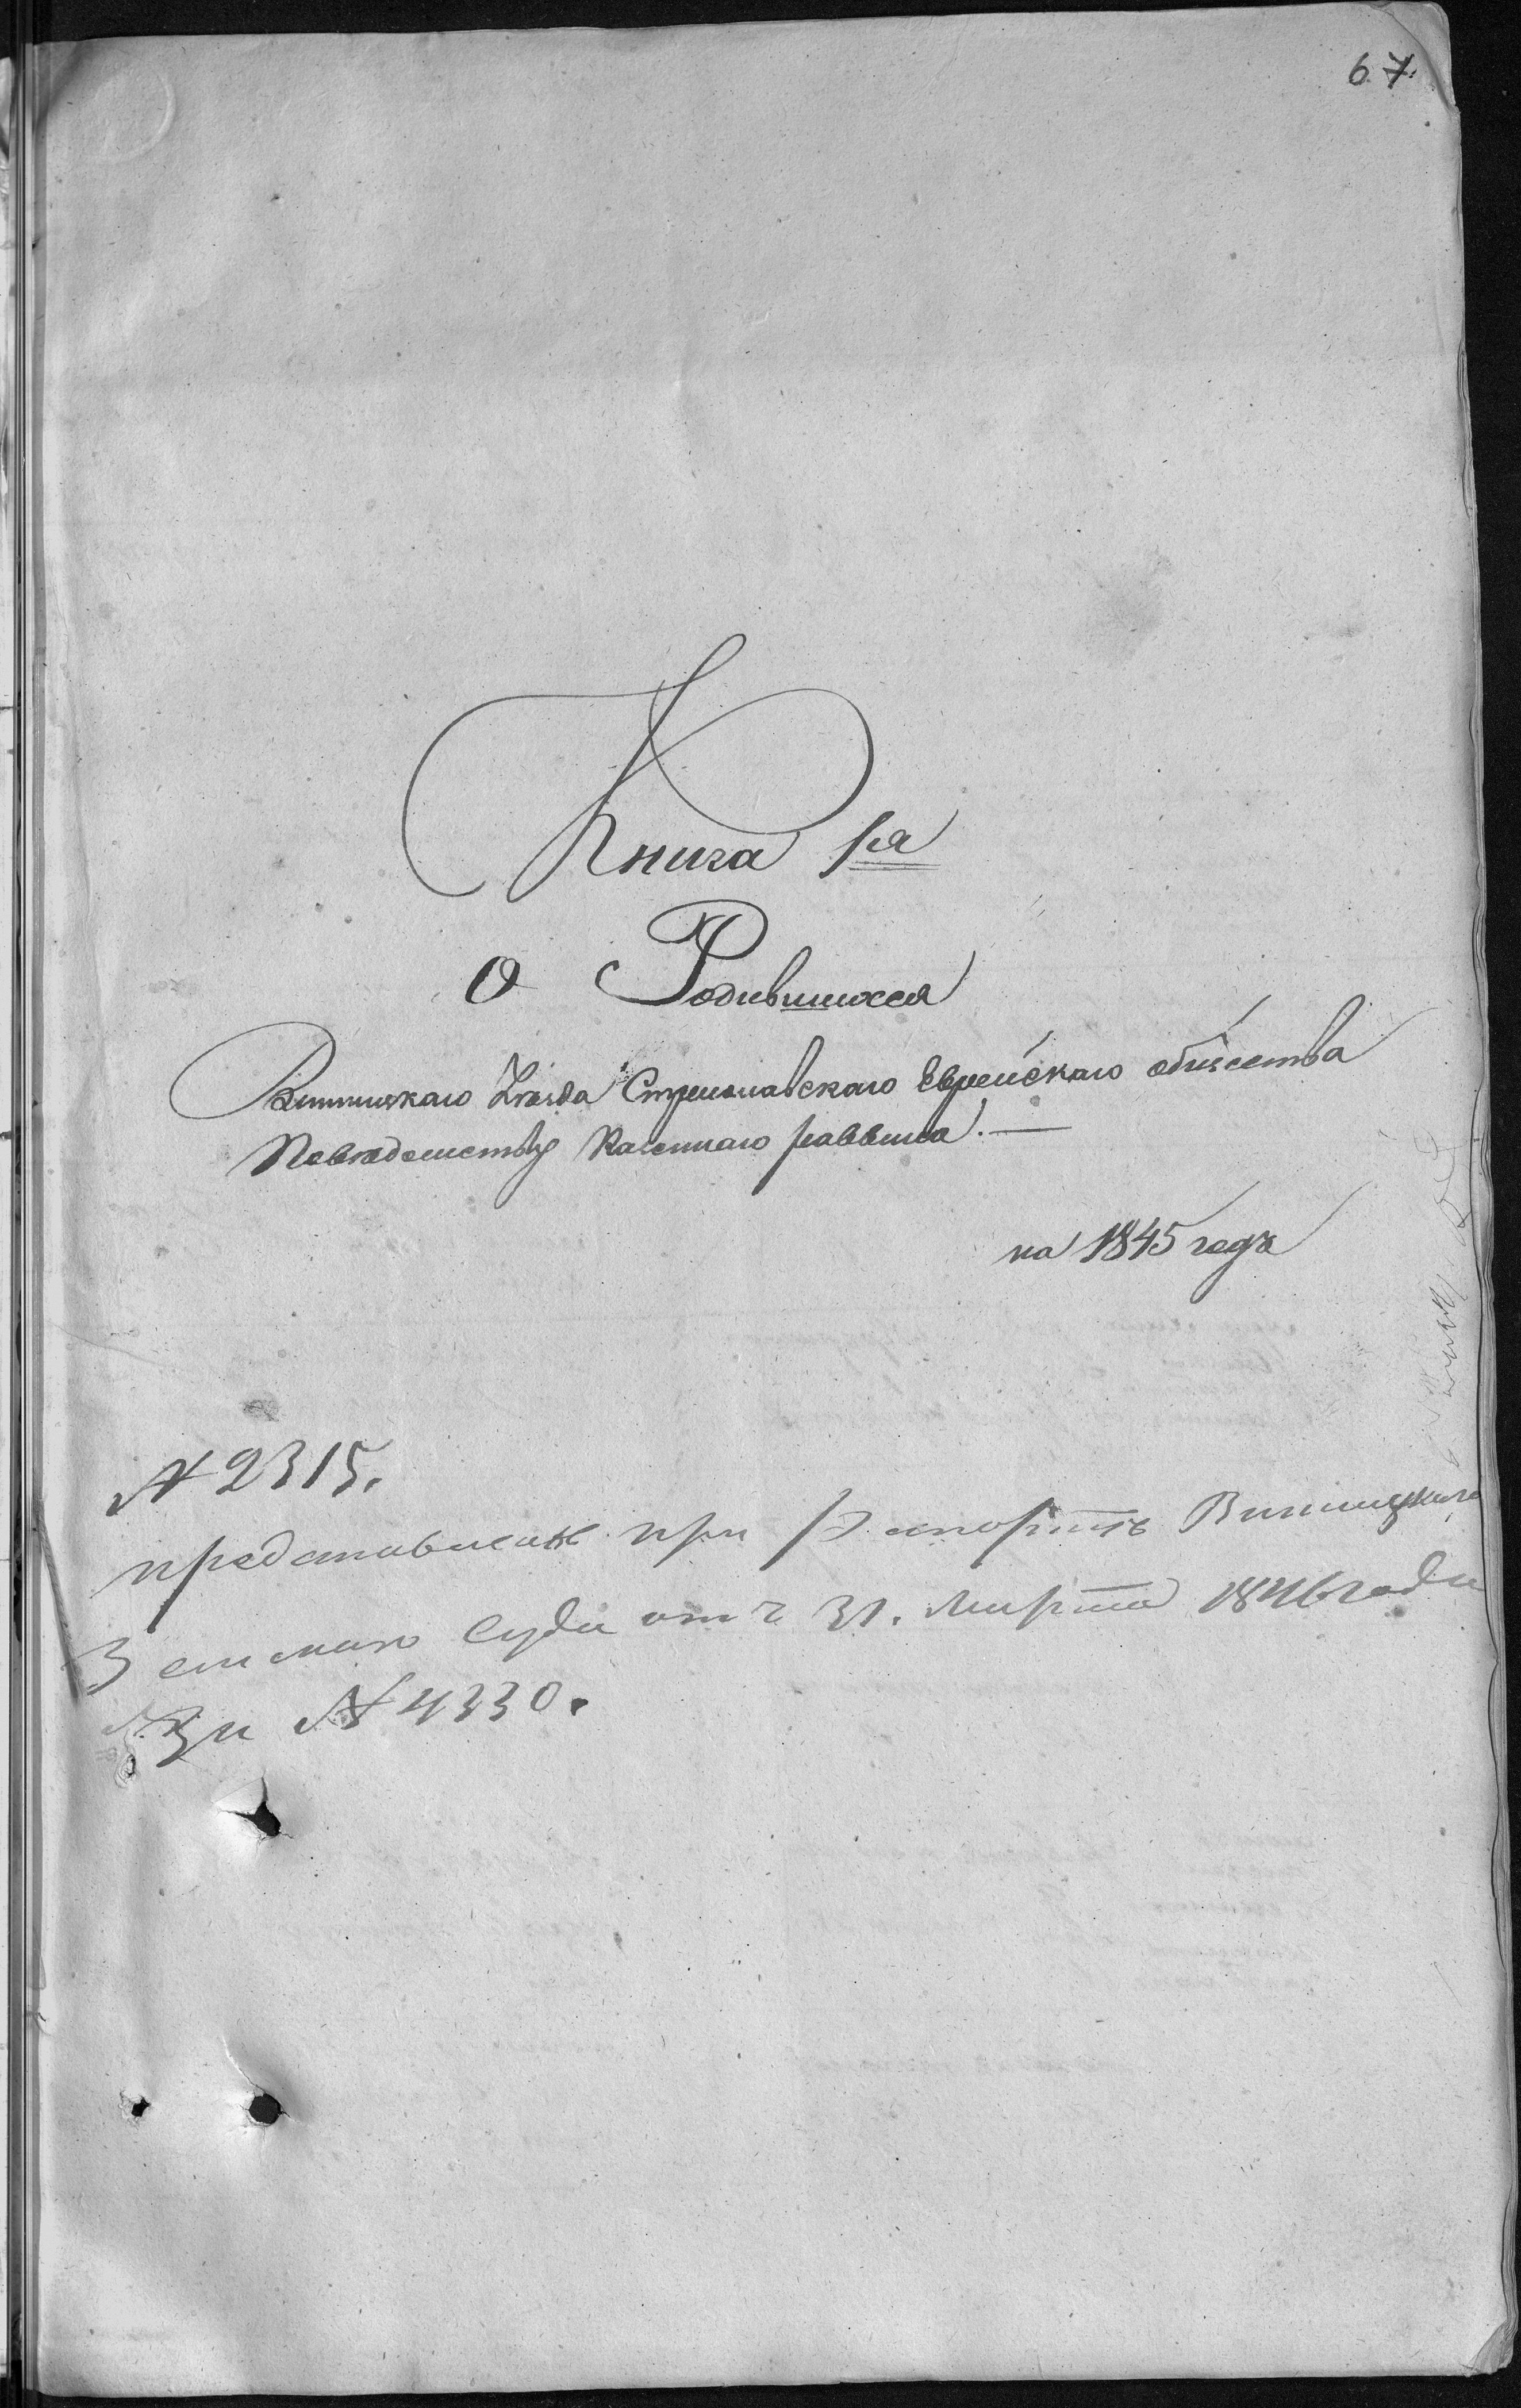 67.
Книга 1я
О Родившихся
Винницкаго Уезда Стрижавскаго Еврейскаго общества
Поведомству Казеннаго раввина. —
на 1845 годъ
№ 2315.
представлена при Рапорте Винницкаго
Земскаго Суда отъ 31. Марта 1846 года
За № 4330.